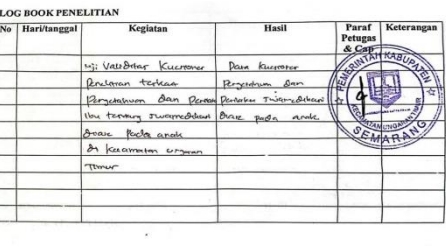 LOG BOOK PENELITIAN
No Hari/tanggal Kegiatan Hasil Paraf Petugas & Cap Keterangan
Uji Validitas Kuesioner Data Kuesioner
Penelitian terkait Pengetahuan dan
Pengetahuan dan Perilaku Swamedikasi
Ibu tentang swamedikasi diare pada anak
diare pada anak
di Kecamatan Ungaran
Timur
PEMERINTAH KABUPATEN
KECAMATAN UNGARAN TIMUR
SEMARANG